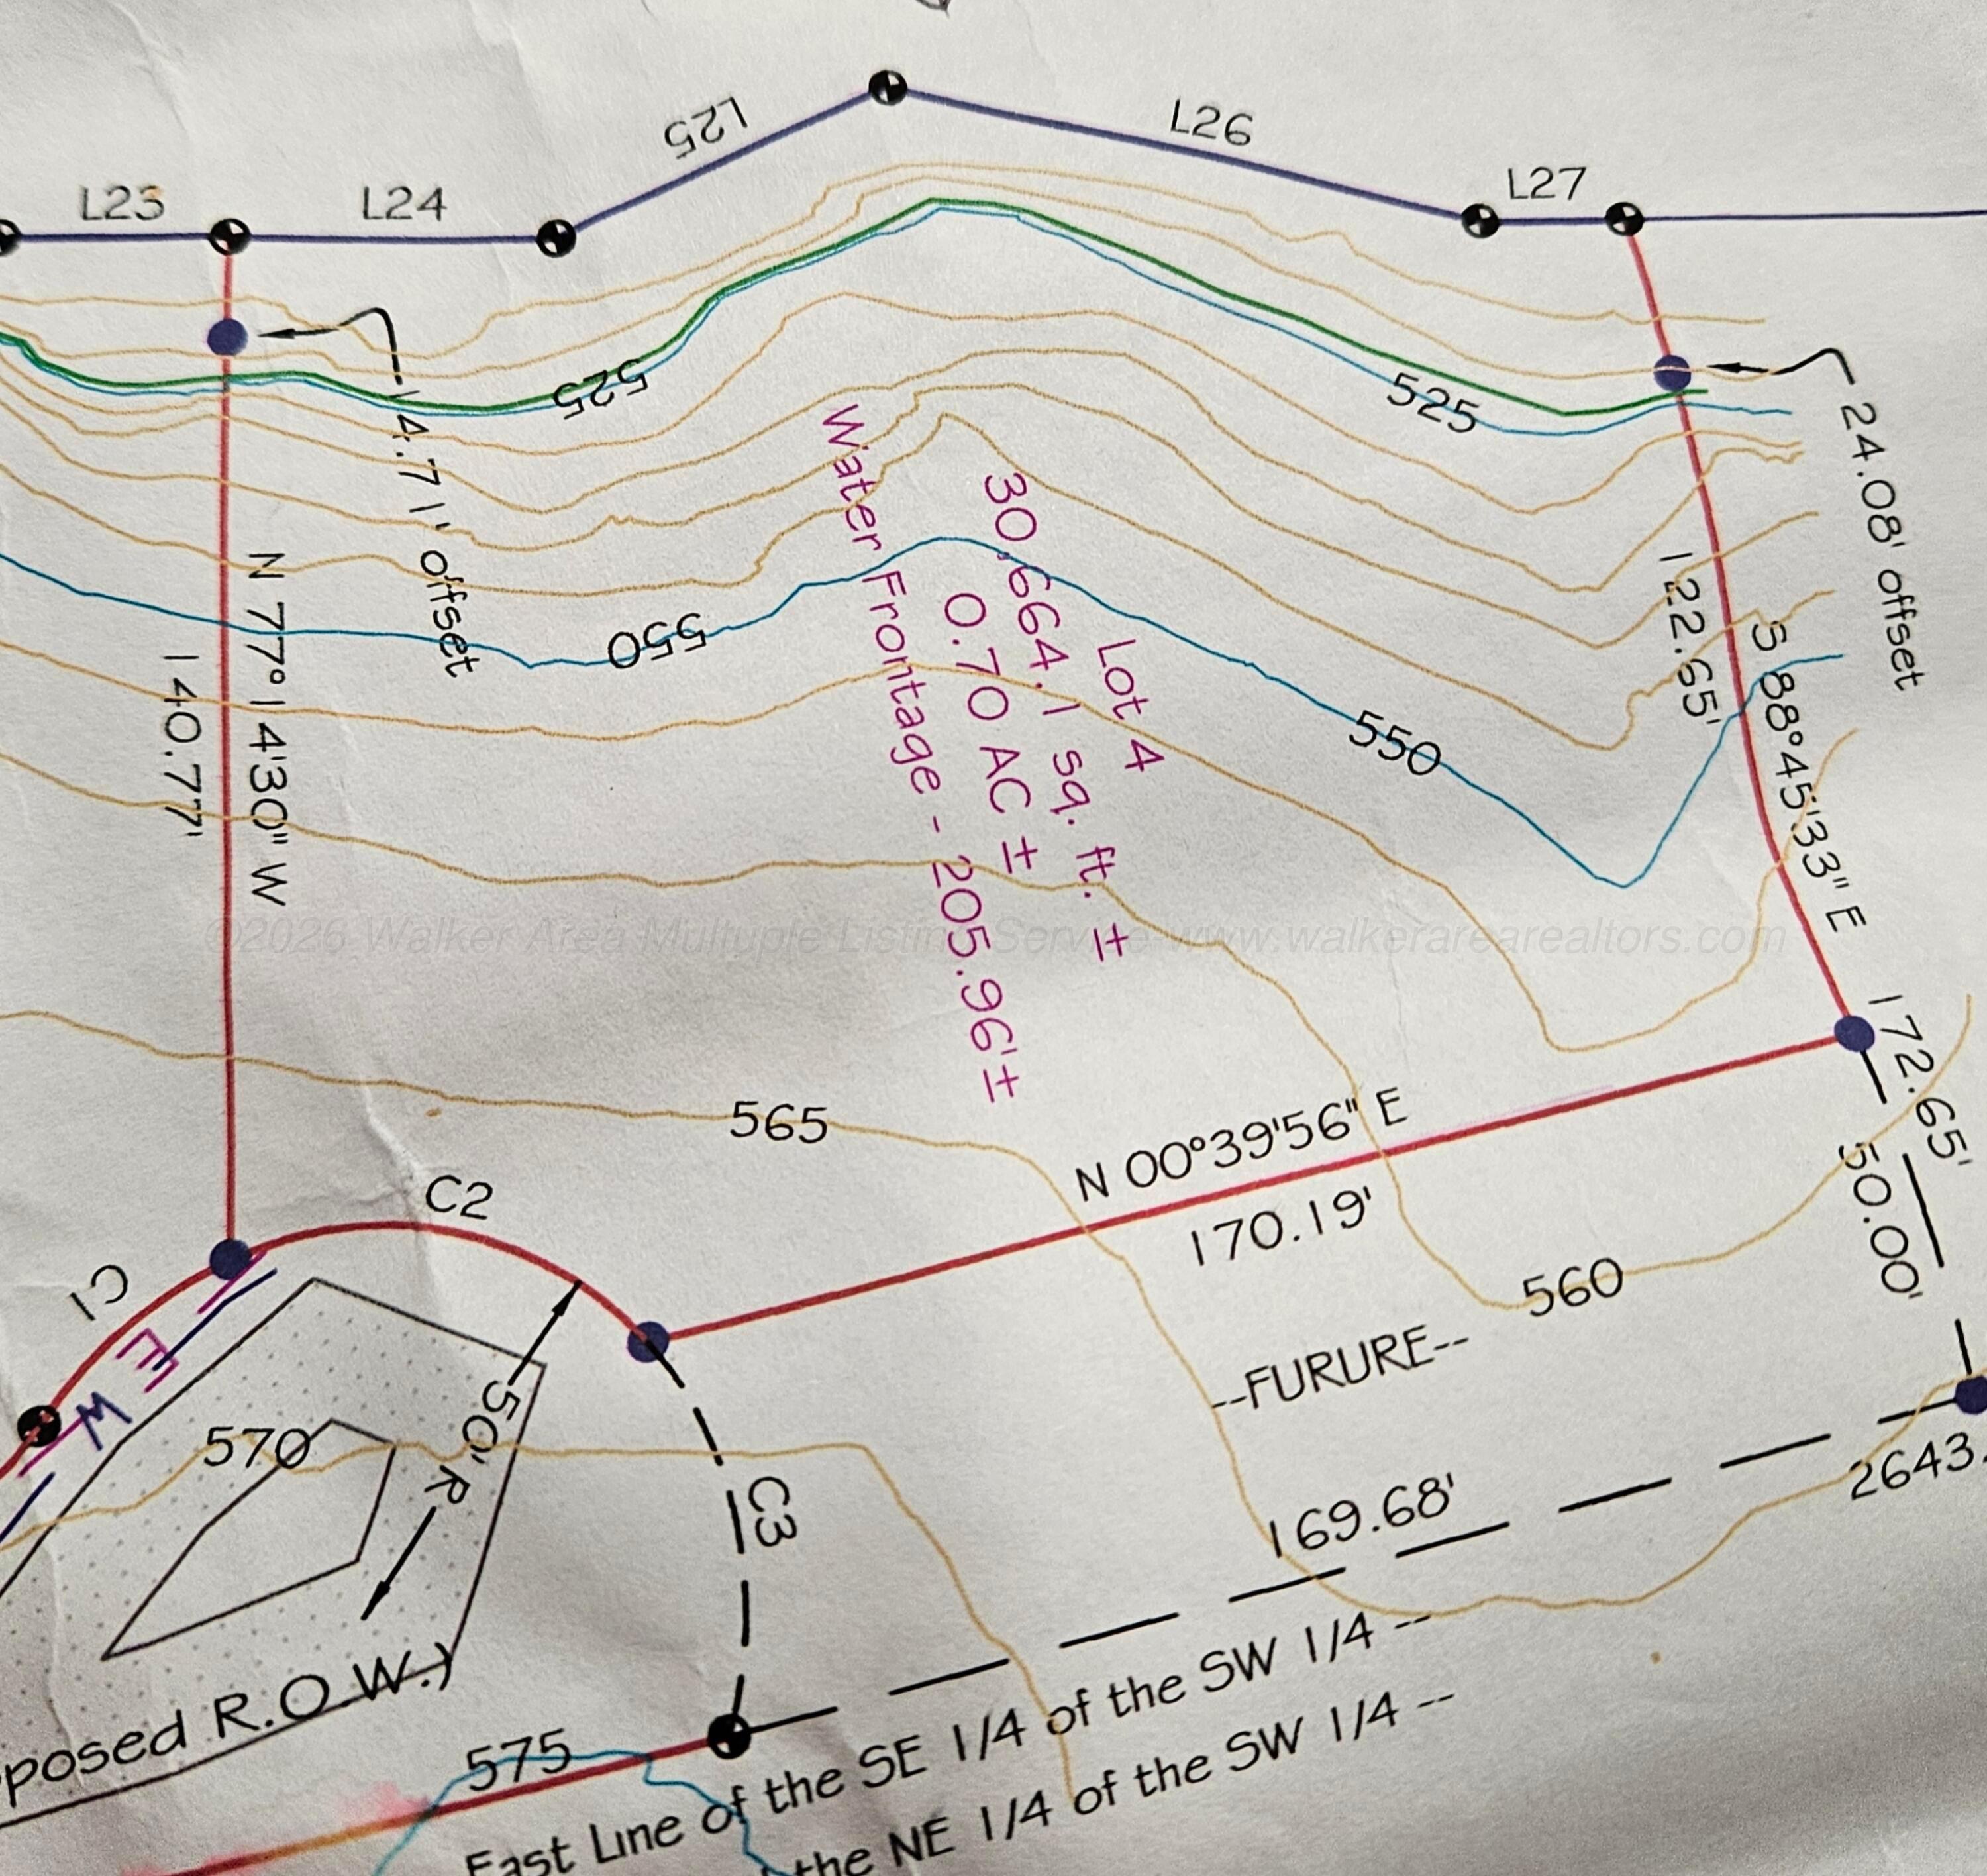 L23
L24
L25
L26
L27
525
525
14.71' offset
24.08' offset
N 77°14'30" W
140.77'
Lot 4
30,664.1 sq. ft. ±
0.70 AC ±
Water Frontage - 205.96'±
122.65'
S 88°45'33" E
550
550
©2026 Walker Area Multuple Listing Service www.walkerarearealtors.com
172.65'
50.00'
565
N 00°39'56" E
170.19'
C2
C1
E
W
560
--FURURE--
50' R
570
C3
169.68'
2643.
posed R.O.W.)
575
East Line of the SE 1/4 of the SW 1/4 --
the NE 1/4 of the SW 1/4 --